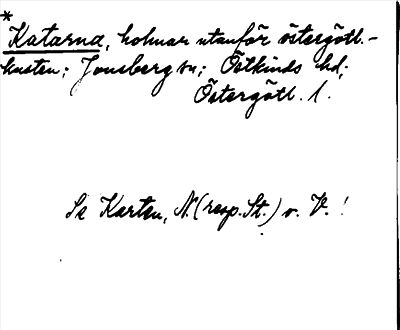 *
Katarna, holmar utanför östergötl.-
kusten; Jonsberg sn; Östkinds hd;
Östergötl. l.
Se Karten, N. (resp. St.) o. V. !